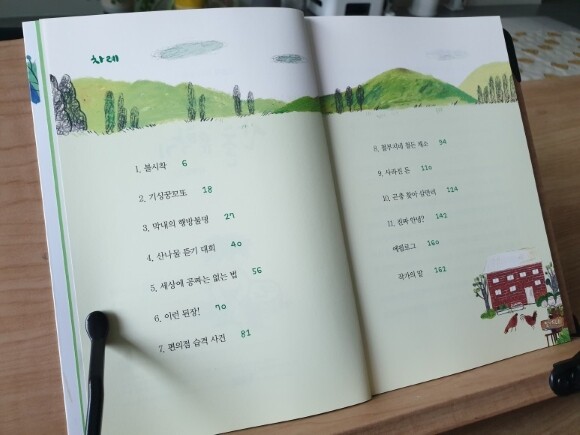 차례
1. 불시착 6
2. 기상꿍꼬또 18
3. 막내의 행방불명 27
4. 산나물 뜯기 대회 40
5. 세상에 공짜는 없는 법 56
6. 이런 된장! 70
7. 편의점 습격 사건 81
8. 철부지네 철든 채소 94
9. 사라진 돈 110
10. 곤충 찾아 삼만리 124
11. 진짜 안녕? 141
에필로그 160
작가의 말 162